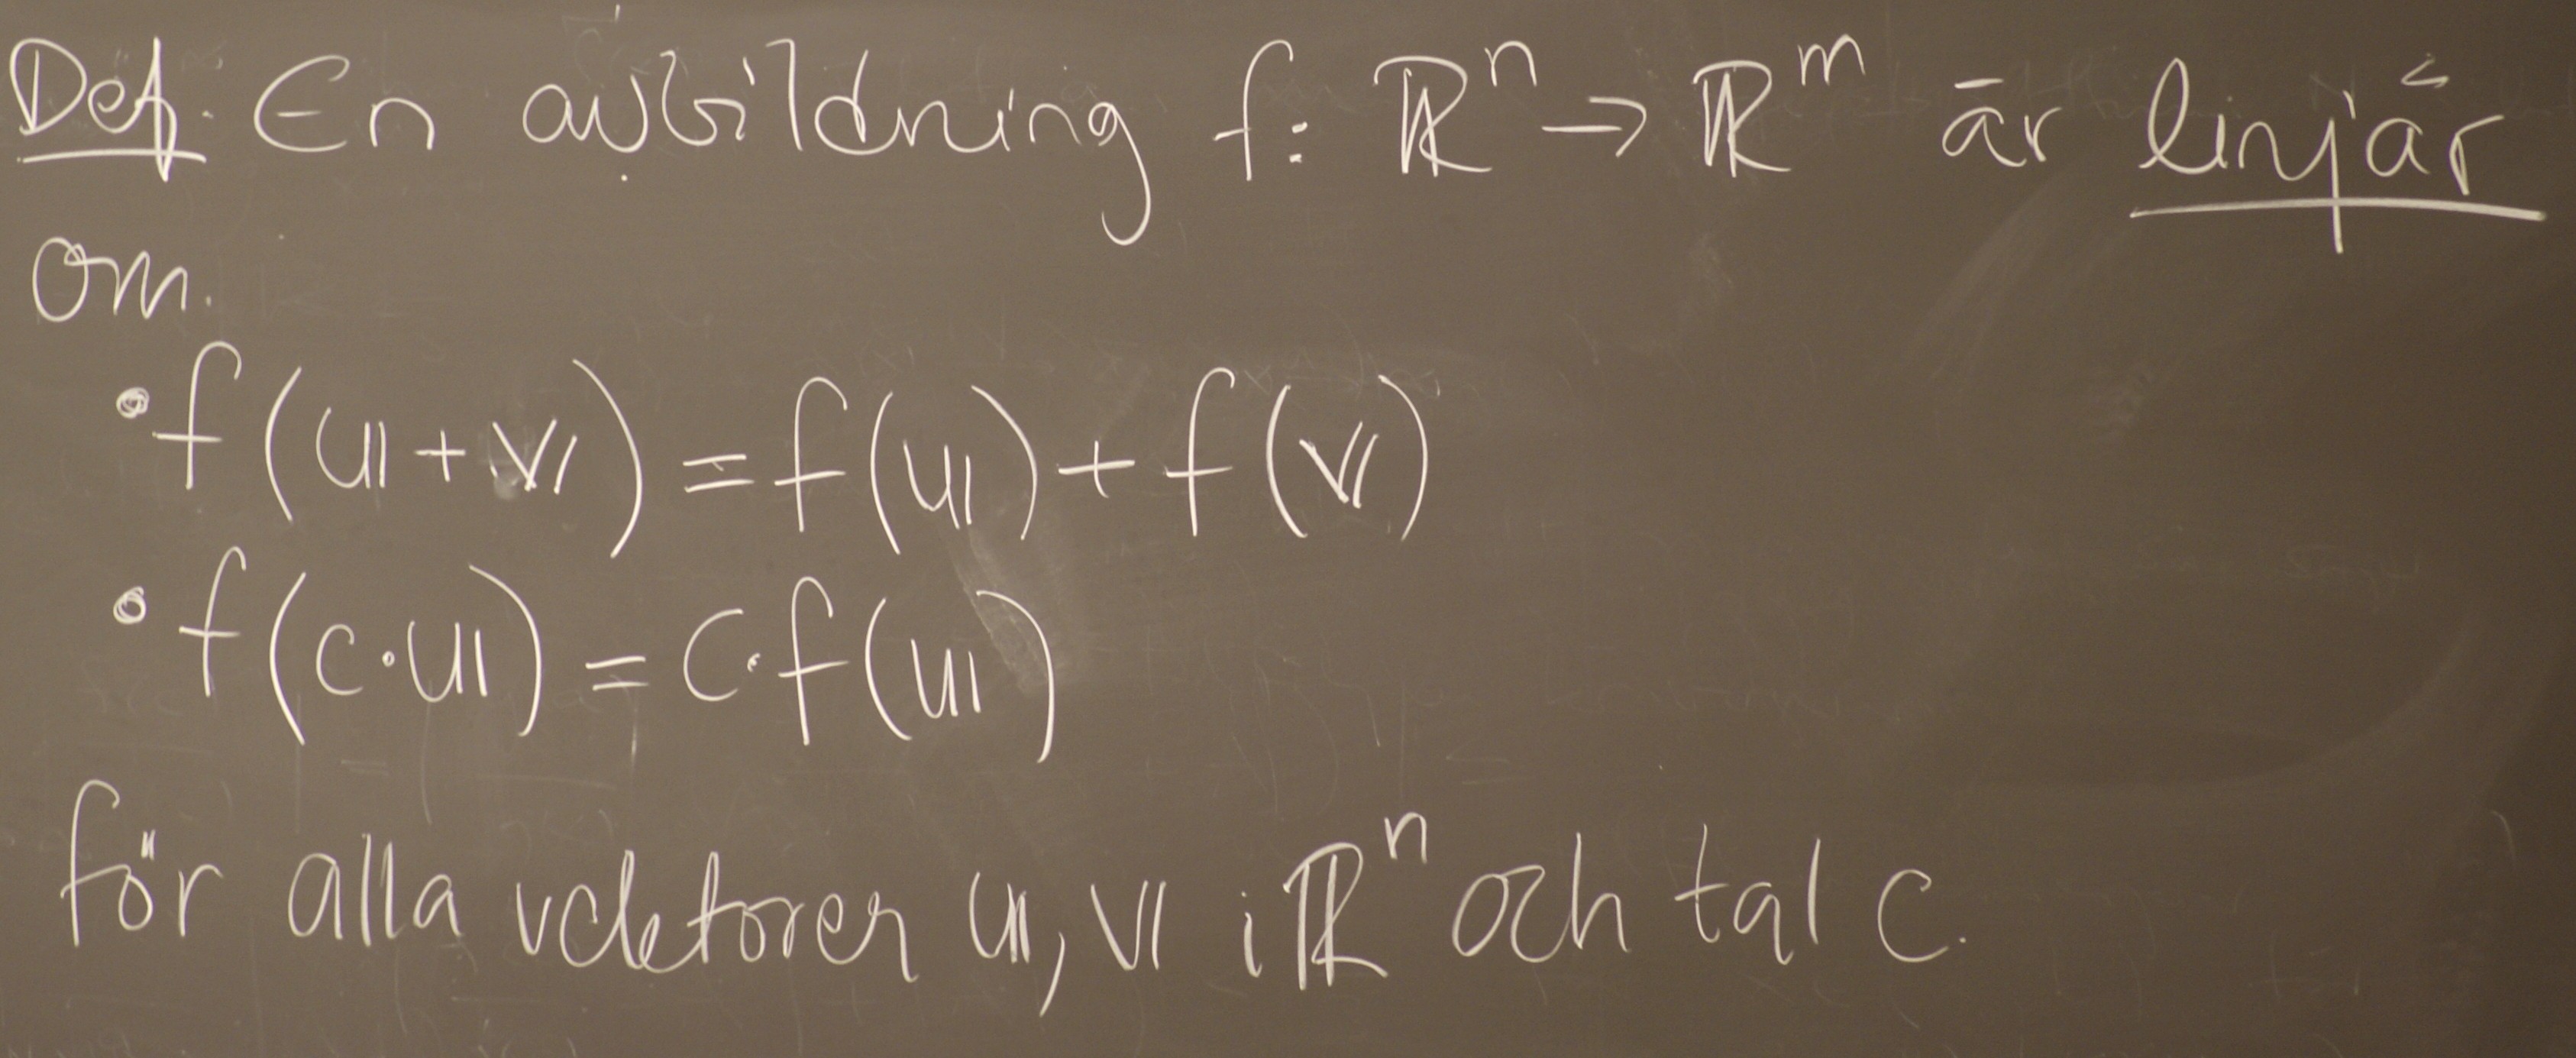 Def. En avbildning f: ℝⁿ → ℝᵐ är linjär
om.
• f(𝕦 + 𝕧) = f(𝕦) + f(𝕧)
• f(c·𝕦) = c·f(𝕦)
för alla vektorer 𝕦, 𝕧 i ℝⁿ och tal c.